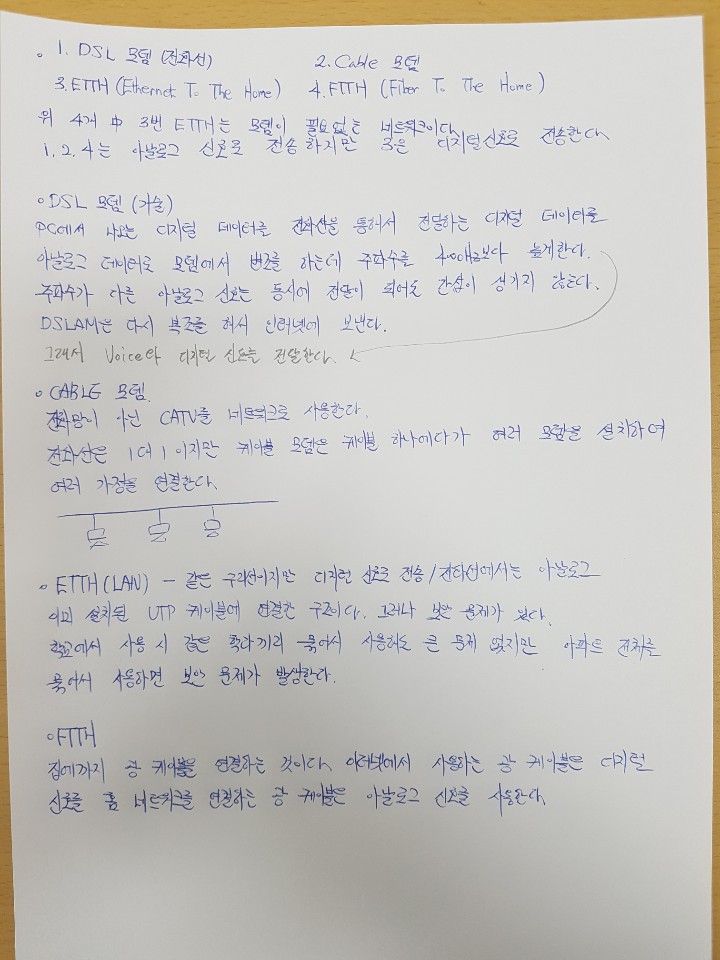 ○ 1. DSL 모뎀 (전화선) 2. Cable 모뎀
3. ETTH (Ethernet To The Home) 4. FTTH (Fiber To The Home)
위 4개 中 3번 ETTH는 모뎀이 필요없는 네트워크이다.
1, 2, 4는 아날로그 신호로 전송하지만 3은 디지털신호로 전송한다.
○ DSL 모뎀 (기술)
PC에서 나오는 디지털 데이터를 전화선을 통해서 전달하는 디지털 데이터를
아날로그 데이터로 모뎀에서 변조를 하는데 주파수를 보다 높게한다.
주파수가 다른 아날로그 신호는 동시에 전달이 되어도 간섭이 생기지 않는다.
DSLAM은 다시 복조를 해서 인터넷에 보낸다.
그래서 Voice와 디지털 신호를 전달한다.
○ CABLE 모뎀.
전화망이 아닌 CATV를 네트워크로 사용한다.
전화선은 1대1이지만 케이블 모뎀은 케이블 하나에다가 여러 모뎀을 설치하여
여러 가정을 연결한다.
○ ETTH(LAN) - 같은 구리선이지만 디지털 신호로 전송/전화선에서는 아날로그
이미 설치된 UTP 케이블에 연결한 구조이다. 그러나 보안 문제가 있다.
학교에서 사용 시 같은 학과끼리 묶어서 사용해도 큰 문제 없지만 아파트 전체를
묶어서 사용하면 보안 문제가 발생한다.
○ FTTH
집에까지 광 케이블을 연결하는 것이다. 인터넷에서 사용하는 광 케이블은 디지털
신호를 홈 네트워크를 연결하는 광 케이블은 아날로그 신호를 사용한다.